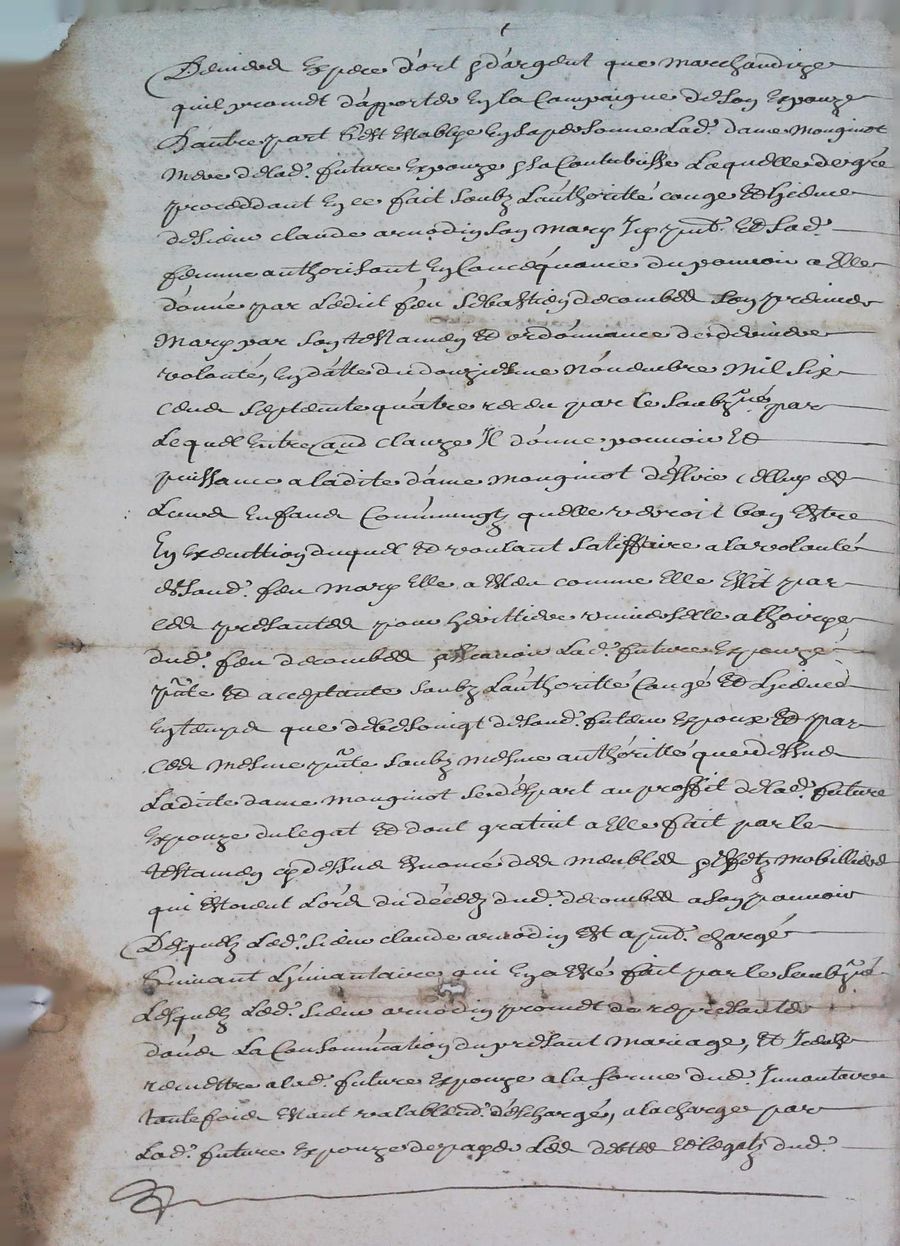 Deniers Espece d'ort et d'argent que marchandize
quil promet d'apporter En la Compaigne de son Espouze
D'autre part s'est Establye En sa personne Lad. dame Monginot
Mere de lad. future Espouze et sa Laquelle de gré
proceddant En ce fait soubz L'authoritté congé Et Licence
de sieur claude arnodin son mary Icy pnt. Et sad.
femme authorisant En Concequance du pouvoir a Elle
donné par Ledict feu Sebastien decombes son premier
Mary par son testamen Et ordonnance de derniere
volonté, En datte du douziesme Novembre Mil Six
cens septente quatre receu par le soubzné par
Lequel Entre aud clauze Il donne pouvoir Et
puissance a ladite dame monginot d'eslire celluy de
Leurs Enfans Communs quelle verroit bon Estre
En Executtion duquel Et voulant satisffaire a la volonté
de sond. feu mary Elle a Esleu comme Elle Eslit par
ces presantes pour herittiere universelle a l'hoirye
dud. feu decombes Lad. future Espouze
pnte Et acceptante soubz L'authoritté Congé Et Licence
En temps que de besoingt de sond. futeur Espoux Et par
ces mesme pnte soubz mesme authoritté que dessus
Ladicte dame monginot se despart au proffit de lad. future
Espouze du legat Et dont gratuit a Elle fait par le
testamen cy dessus Enoncé des meubles et Effetz mobilliers
qui Estoient Lors du décedz dud. decombes a son pouvoir
Desquelz Led. sieur claude arnodin Est a pnt. chargé
suivant L'Inventaire qui En a Esté fait par le soubzné
Lesquelz Led. sieur arnodin promet de represanter
dans La Consommation du presant mariage, Et Iceux
remettre a lad. future Espouze a la forme dud. Inventaire
toutefois Estant valablemt. deschargé, a la charge par
Lad. future Espouze de payer Les debtes Et legatz dud.